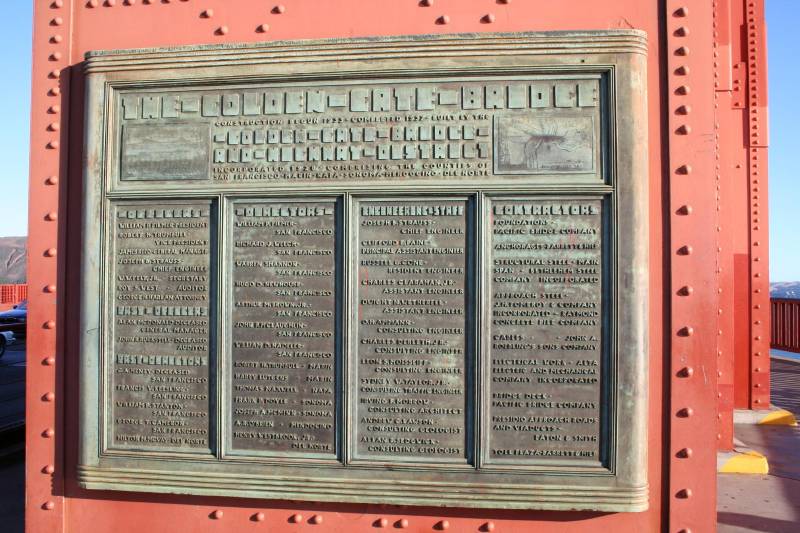 THE-GOLDEN-GATE-BRIDGE
CONSTRUCTION BEGUN 1933-COMPLETED 1937-BUILT BY THE
-GOLDEN-GATE-BRIDGE-
AND-HIGHWAY-DISTRICT
INCORPORATED 1928-COMPRISING THE COUNTIES OF
SAN FRANCISCO-MARIN-NAPA-SONOMA-MENDOCINO-DEL NORTE
-OFFICERS-
WILLIAM P. FILMER-PRESIDENT
ROBERT H. TRUMBULL
VICE PRESIDENT
GENERAL MANAGER
JOSEPH B. STRAUSS
CHIEF ENGINEER
SECRETARY
ROY S. WEST - AUDITOR
GEORGE H. HARLAN-ATTORNEY
PAST-OFFICERS
ALAN McDONALD-DECEASED
GENERAL MANAGER
JOHN R. RUCKSTELL-DECEASED
AUDITOR
PAST-DIRECTORS
DECEASED
SAN FRANCISCO
FRANCIS V. KEESLING
SAN FRANCISCO
WILLIAM P. STANTON
SAN FRANCISCO
GEORGE T. CAMERON
SAN FRANCISCO
MILTON M. McVAY-DEL NORTE
-DIRECTORS-
WILLIAM P. FILMER-
SAN FRANCISCO
RICHARD J. WELCH-
SAN FRANCISCO
WARREN SHANNON-
SAN FRANCISCO
HUGO D. NEWHOUSE-
SAN FRANCISCO
ARTHUR M. BROWN, JR.-
SAN FRANCISCO
JOHN P. McLAUGHLIN-
SAN FRANCISCO
WILLIAM D. HADELER-
SAN FRANCISCO
ROBERT H. TRUMBULL - MARIN
HARRY LUTGENS - MARIN
THOMAS MAXWELL - NAPA
FRANK P. DOYLE - SONOMA
JOSEPH A. McMINN-SONOMA
A. R. O'BRIEN - MENDOCINO
HENRY WESTBROOK, JR.-
DEL NORTE
ENGINEERING-STAFF
JOSEPH B. STRAUSS-
CHIEF ENGINEER
CLIFFORD E. PAINE-
PRINCIPAL ASSISTANT ENGINEER
RUSSELL G. CONE-
RESIDENT ENGINEER
CHARLES CLARAHAN, JR.-
ASSISTANT ENGINEER
DWIGHT N. WETHERELL-
ASSISTANT ENGINEER
O. H. AMMANN-
CONSULTING ENGINEER
CHARLES DERLETH, JR.-
CONSULTING ENGINEER
LEON S. MOISSEIFF-
CONSULTING ENGINEER
SYDNEY W. TAYLOR, JR.-
CONSULTING TRAFFIC ENGINEER
IRVING F. MORROW-
CONSULTING ARCHITECT
ANDREW C. LAWSON-
CONSULTING GEOLOGIST
ALLAN E. SEDGWICK-
CONSULTING GEOLOGIST
CONTRACTORS
FOUNDATIONS-
PACIFIC BRIDGE COMPANY
ANCHORAGES-BARRETT & HILP
STRUCTURAL STEEL-MAIN
SPAN - BETHLEHEM STEEL
COMPANY INCORPORATED
APPROACH STEEL-
J. H. POMEROY & COMPANY
INCORPORATED - RAYMOND
CONCRETE PILE COMPANY
CABLES - JOHN A.
ROEBLING'S SONS COMPANY
ELECTRICAL WORK-ALTA
ELECTRIC AND MECHANICAL
COMPANY INCORPORATED
BRIDGE DECK-
PACIFIC BRIDGE COMPANY
PRESIDIO APPROACH ROADS
AND VIADUCTS-
EATON & SMITH
TOLL PLAZA-BARRETT & HILP